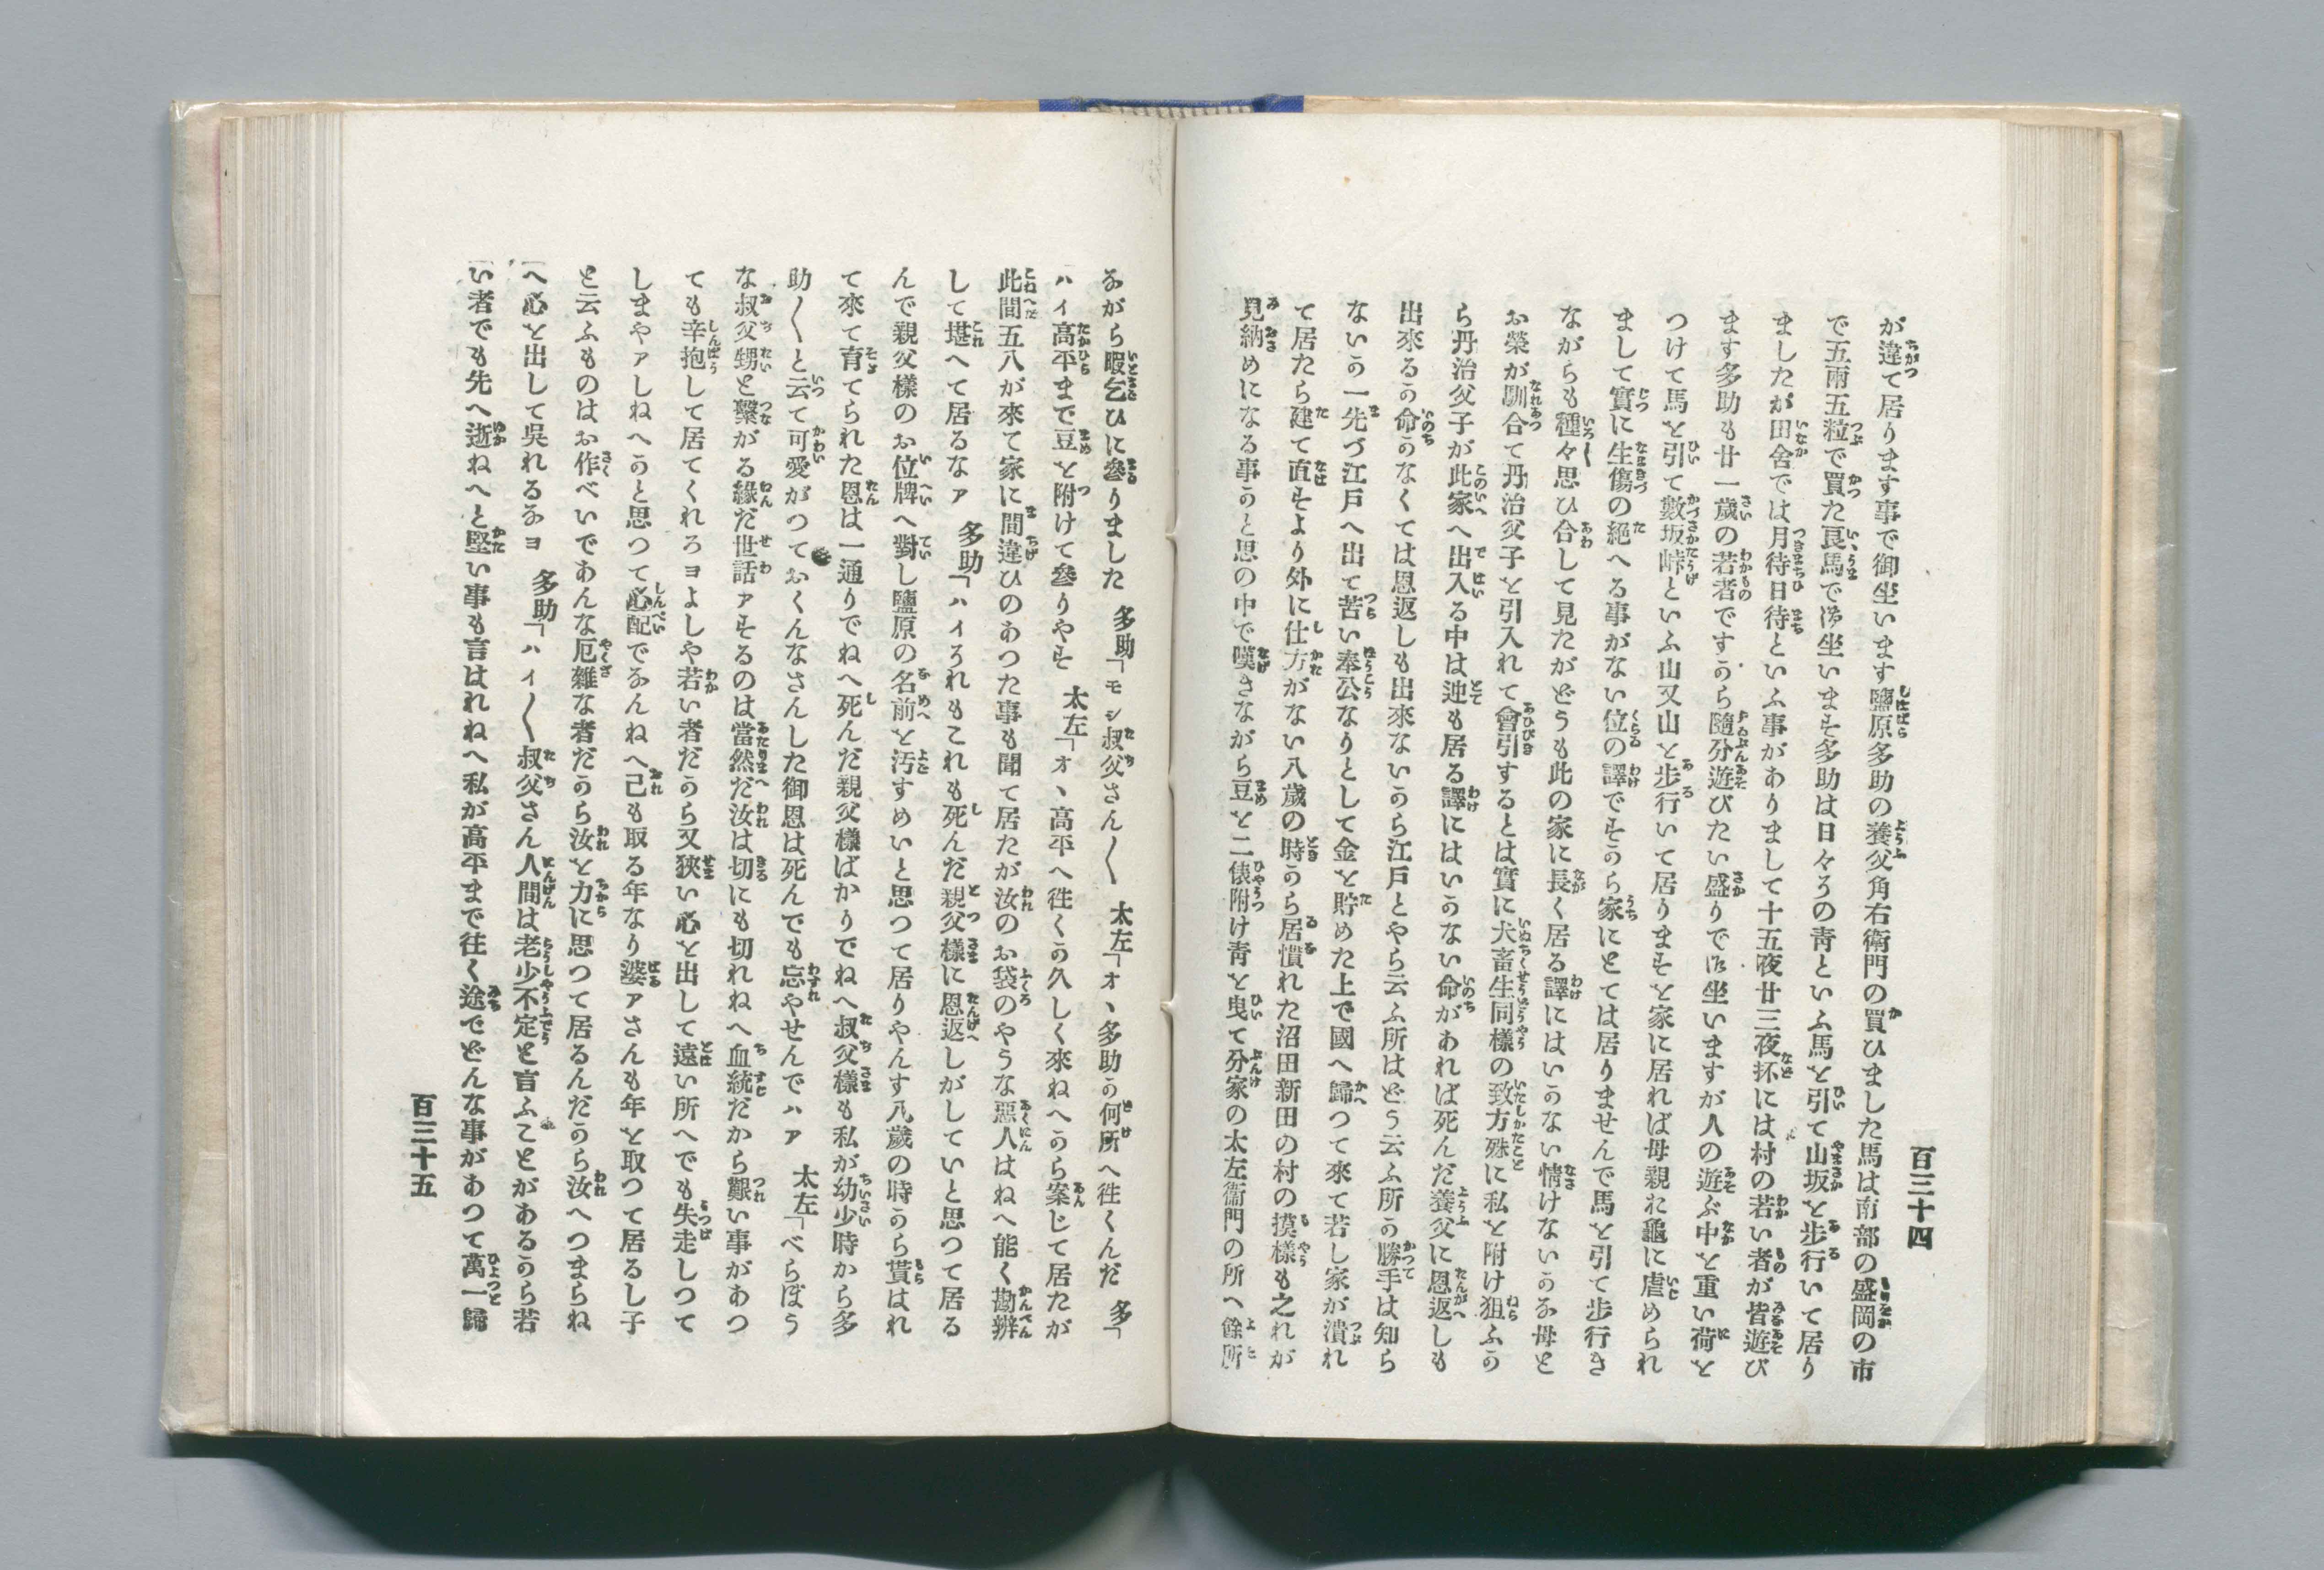 百三十四
が違て居ります事で御坐います鹽原多助の養父角右衛門の買ひました馬は南部の盛岡の市
で五兩五粒で買た良馬で御坐いまず多助は日々ろの靑といふ馬を引て山坂を步行いて居り
ましたが田舍では月待日待といふ事がありまして十五夜廿三夜抔には村の若い者が皆遊び
ます多助も廿一歲の若者ですから隨分遊びたい盛りで御坐いますが人の遊ぶ中を重い荷を
つけて馬を引て數坂峠といふ山又山を步行いて居りまずと家に居れば母親お龜に虐められ
まして實に生傷の絕へる事がない位の譯でずから家にとては居りませんで馬を引て步行き
ながらも種々思ひ合して見たがどうも此の家に長く居る譯にはいかない情けないかな母と
お榮が馴合て丹治父子を引入れて會引するとは實に犬畜生同樣の致方殊に私を附け狙ふか
ら丹治父子が此家へ出入る中は迚も居る譯にはいかない命があれば死んだ養父に恩返しも
出來るか命かなくては恩返しも出來ないから江戸とやら云ふ所はどう云ふ所か勝手は知ら
ないか一先づ江戸へ出て苦い奉公なりとして金を貯めた上で國へ歸つて來て若し家が潰れ
て居たら建て直ずより外に仕方がない八歲の時から居慣れた沼田新田の村の摸樣も之れが
見納めになる事かと思の中で嘆きながら豆を二俵附け靑を曳て分家の太左衞門の所へ餘所
ながら暇乞ひに參りました　多助「モシ叔父さん〱　太左「オヽ多助か何所へ徃くんだ　多「
ハイ高平まで豆を附けて參りやず　太左「オヽ高平へ徃くか久しく來ねへから案じて居たが
此間五八が來て家に間違ひのあつた事も聞て居たが汝のお袋のやうな惡人はねへ能く勘辨
して堪へて居るなァ　多助「ハイろれもこれも死んだ親父樣に恩返しがしていと思つて居る
んで親父樣のお位牌へ對し鹽原の名前を汚すめいと思つて居りやんす八歲の時から貰はれ
て來て育てられた恩は一通りでねへ死んだ親父樣ばかりでねへ叔父樣も私が幼少時から多
助〱と云て可愛がつておくんなさんした御恩は死んでも忘やせんでハァ　太左「べらぼう
な叔父甥と繫がる緣だ世話ァずるのは當然だ汝は切にも切れねへ血統だから艱い事があつ
ても辛抱して居てくれろヨよしや若い者だから又狹い心を出して遠い所へでも失走しつて
しまやァしねへかと思つて心配でなんねへ己も取る年なり婆ァさんも年を取つて居るし子
と云ふものはお作べいであんな厄雜な者だから汝を力に思つて居るんだから汝へつまらね
へ心を出して吳れるなヨ　多助「ハイ〱叔父さん人間は老少不定と言ふことがあるから若
い者でも先へ逝ねへと堅い事も言はれねへ私が高平まで往く途でどんな事があつて萬一歸
百三十五